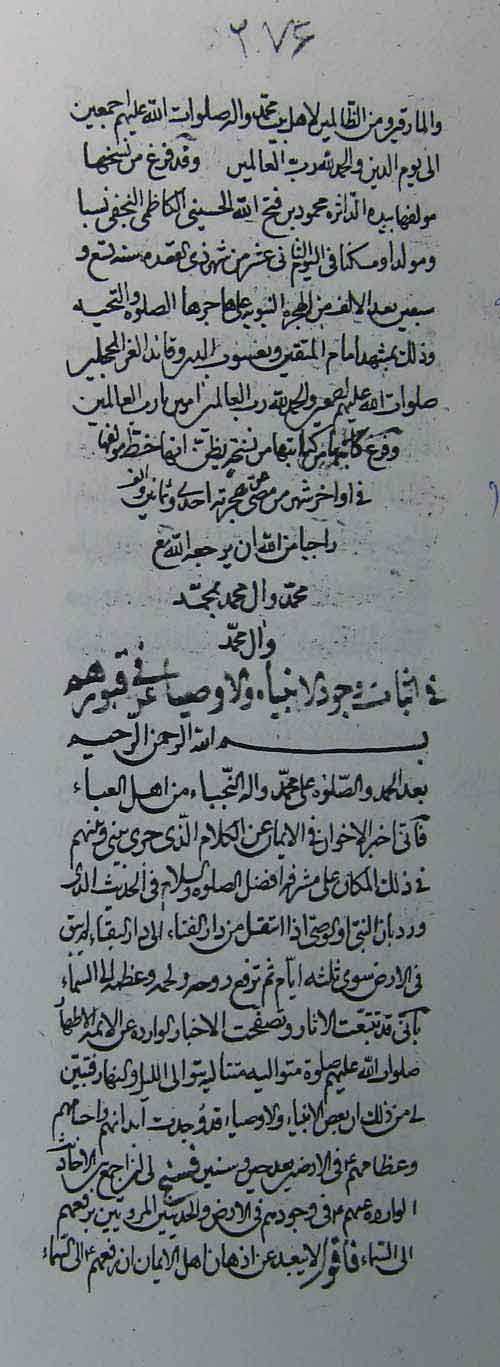 ٢٧۶
والمارقين ومن الظالمين لاهل بيت محمّد واله صلوات الله عليهم اجمعين
الى يوم الدين والحمد لله ربّ العالمين وقد فرغ من نسخها
مولفها بيده الدّاثره محمود بن فتح الله الحسيني الكاظمي النجفي نسبا
ومولدا ومسكنا في اليوم الثاني عشر من شهر ذي القعده سنه تسع و
سبعين بعد الالف من الهجرة النبويه على هاجرها الصلوة والتحيه
وذلك بمشهد امام المتقين ويعسوب الدين وقائد الغر المحجلين
صلوات الله عليهم اجمعين والحمد لله رب العالمين امين يا رب العالمين
وفرغ كاتبها من كتابتها من نسخة يظنّ انها خطّ مولفها
في اواخر شهر من هجرته احدى وثمانين والف
راجيا من الله ان يرحمه الله مع
محمّد وال محمد بمحمّد
وال محمّد
في اثبات وجود الانبياء والاوصياء في قبورهم
بسم الله الرحمن الرحيم
بعد الحمد والصّلوة على محمّد واله النّجباء من اهل العباء
فانّى اخبر الاخوان في الايمان عن الكلام الّذى جرى بيني وبينهم
في ذلك المكان على مشرفه افضل الصلوة والسلام في الحديث الذى
ورد بان النبي او الوصي اذا انتقل من دار الفناء الى دار البقاء لم يبق
في الارض سوى ثلثه ايّام ثم ترفع روحه ولحمه وعظمه الى السّماء
بانّى قد تتبّعت الاثار وتصفّحت الاخبار الوارده عن الائمة الاطهار
صلوات الله عليهم صلوة متواليه متتاليه بتوالى الليل والنهار فتبيّن
لي من ذلك ان بعض الانبياء والاوصياء قد وجدت ابدانهم واجسامهم
وعظامهم في الارض بعد حين وسنين فسنح لي ان اجمع بين الاحاديث
الوارده عنهم في وجودهم في الارض والحديثين المرويين برفعهم
الى السّماء فاقول لا يبعد عن اذهان اهل الايمان ان رفعهم الى السّماء